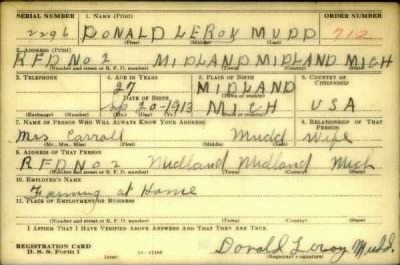 SERIAL NUMBER 1. NAME (Print) ORDER NUMBER
2296 DONALD LEROY MUDD 712
(First) (Middle) (Last)
2. ADDRESS (Print)
RFD No 2 MIDLAND MIDLAND MICH
(Number and street or R. F. D. number) (Town) (County) (State)
3. TELEPHONE 4. AGE IN YEARS 5. PLACE OF BIRTH 6. COUNTRY OF CITIZENSHIP
27 MIDLAND
DATE OF BIRTH (Town or county)
Sep 20-1913 MICH USA
(Exchange) (Number) (Mo.) (Day) (Yr.) (State or country)
7. NAME OF PERSON WHO WILL ALWAYS KNOW YOUR ADDRESS 8. RELATIONSHIP OF THAT PERSON
Mrs Carroll Mudd Wife
(Mr., Mrs., Miss) (First) (Middle) (Last)
9. ADDRESS OF THAT PERSON
RFD No 2 Midland Midland Mich
(Number and street or R. F. D. number) (Town) (County) (State)
10. EMPLOYER'S NAME
Farming at Home
11. PLACE OF EMPLOYMENT OR BUSINESS
(Number and street or R. F. D. number) (Town) (County) (State)
I AFFIRM THAT I HAVE VERIFIED ABOVE ANSWERS AND THAT THEY ARE TRUE.
REGISTRATION CARD
D. S. S. Form 1 (over) Donald Leroy Mudd
(Registrant's signature)